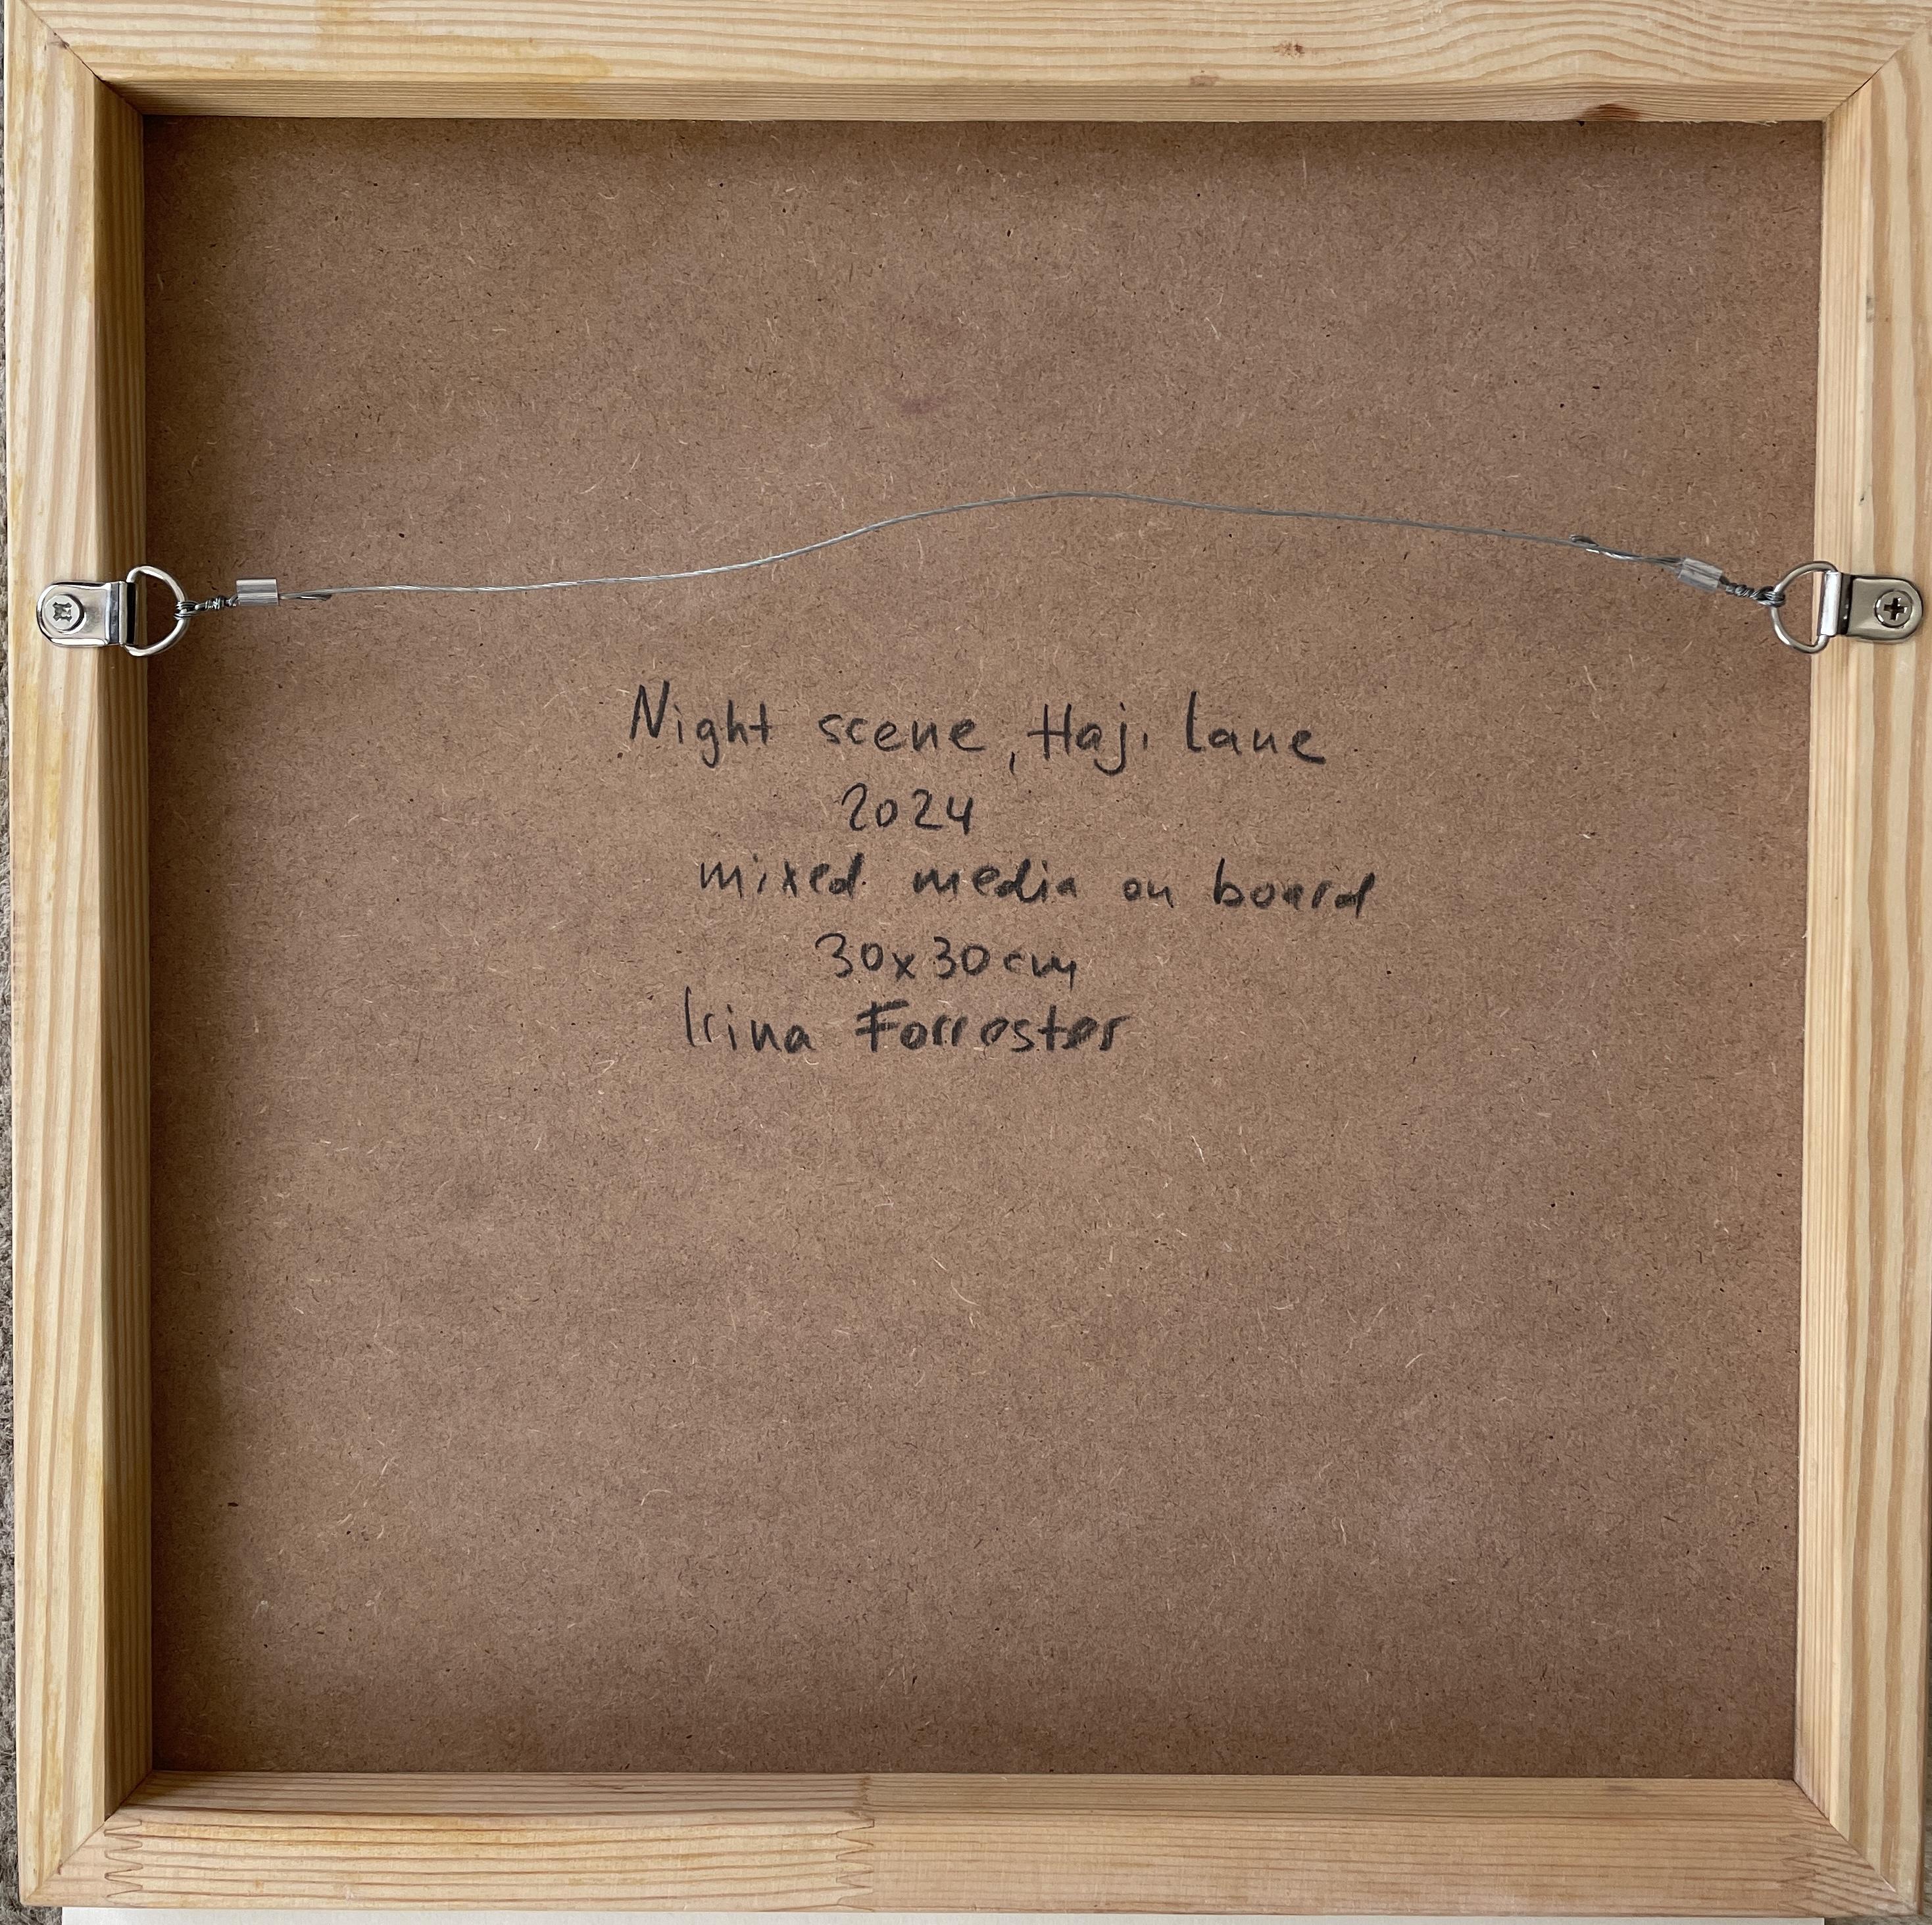 Night scene, Haji lane
2024
mixed media on board
30x30cm
Irina Forrester